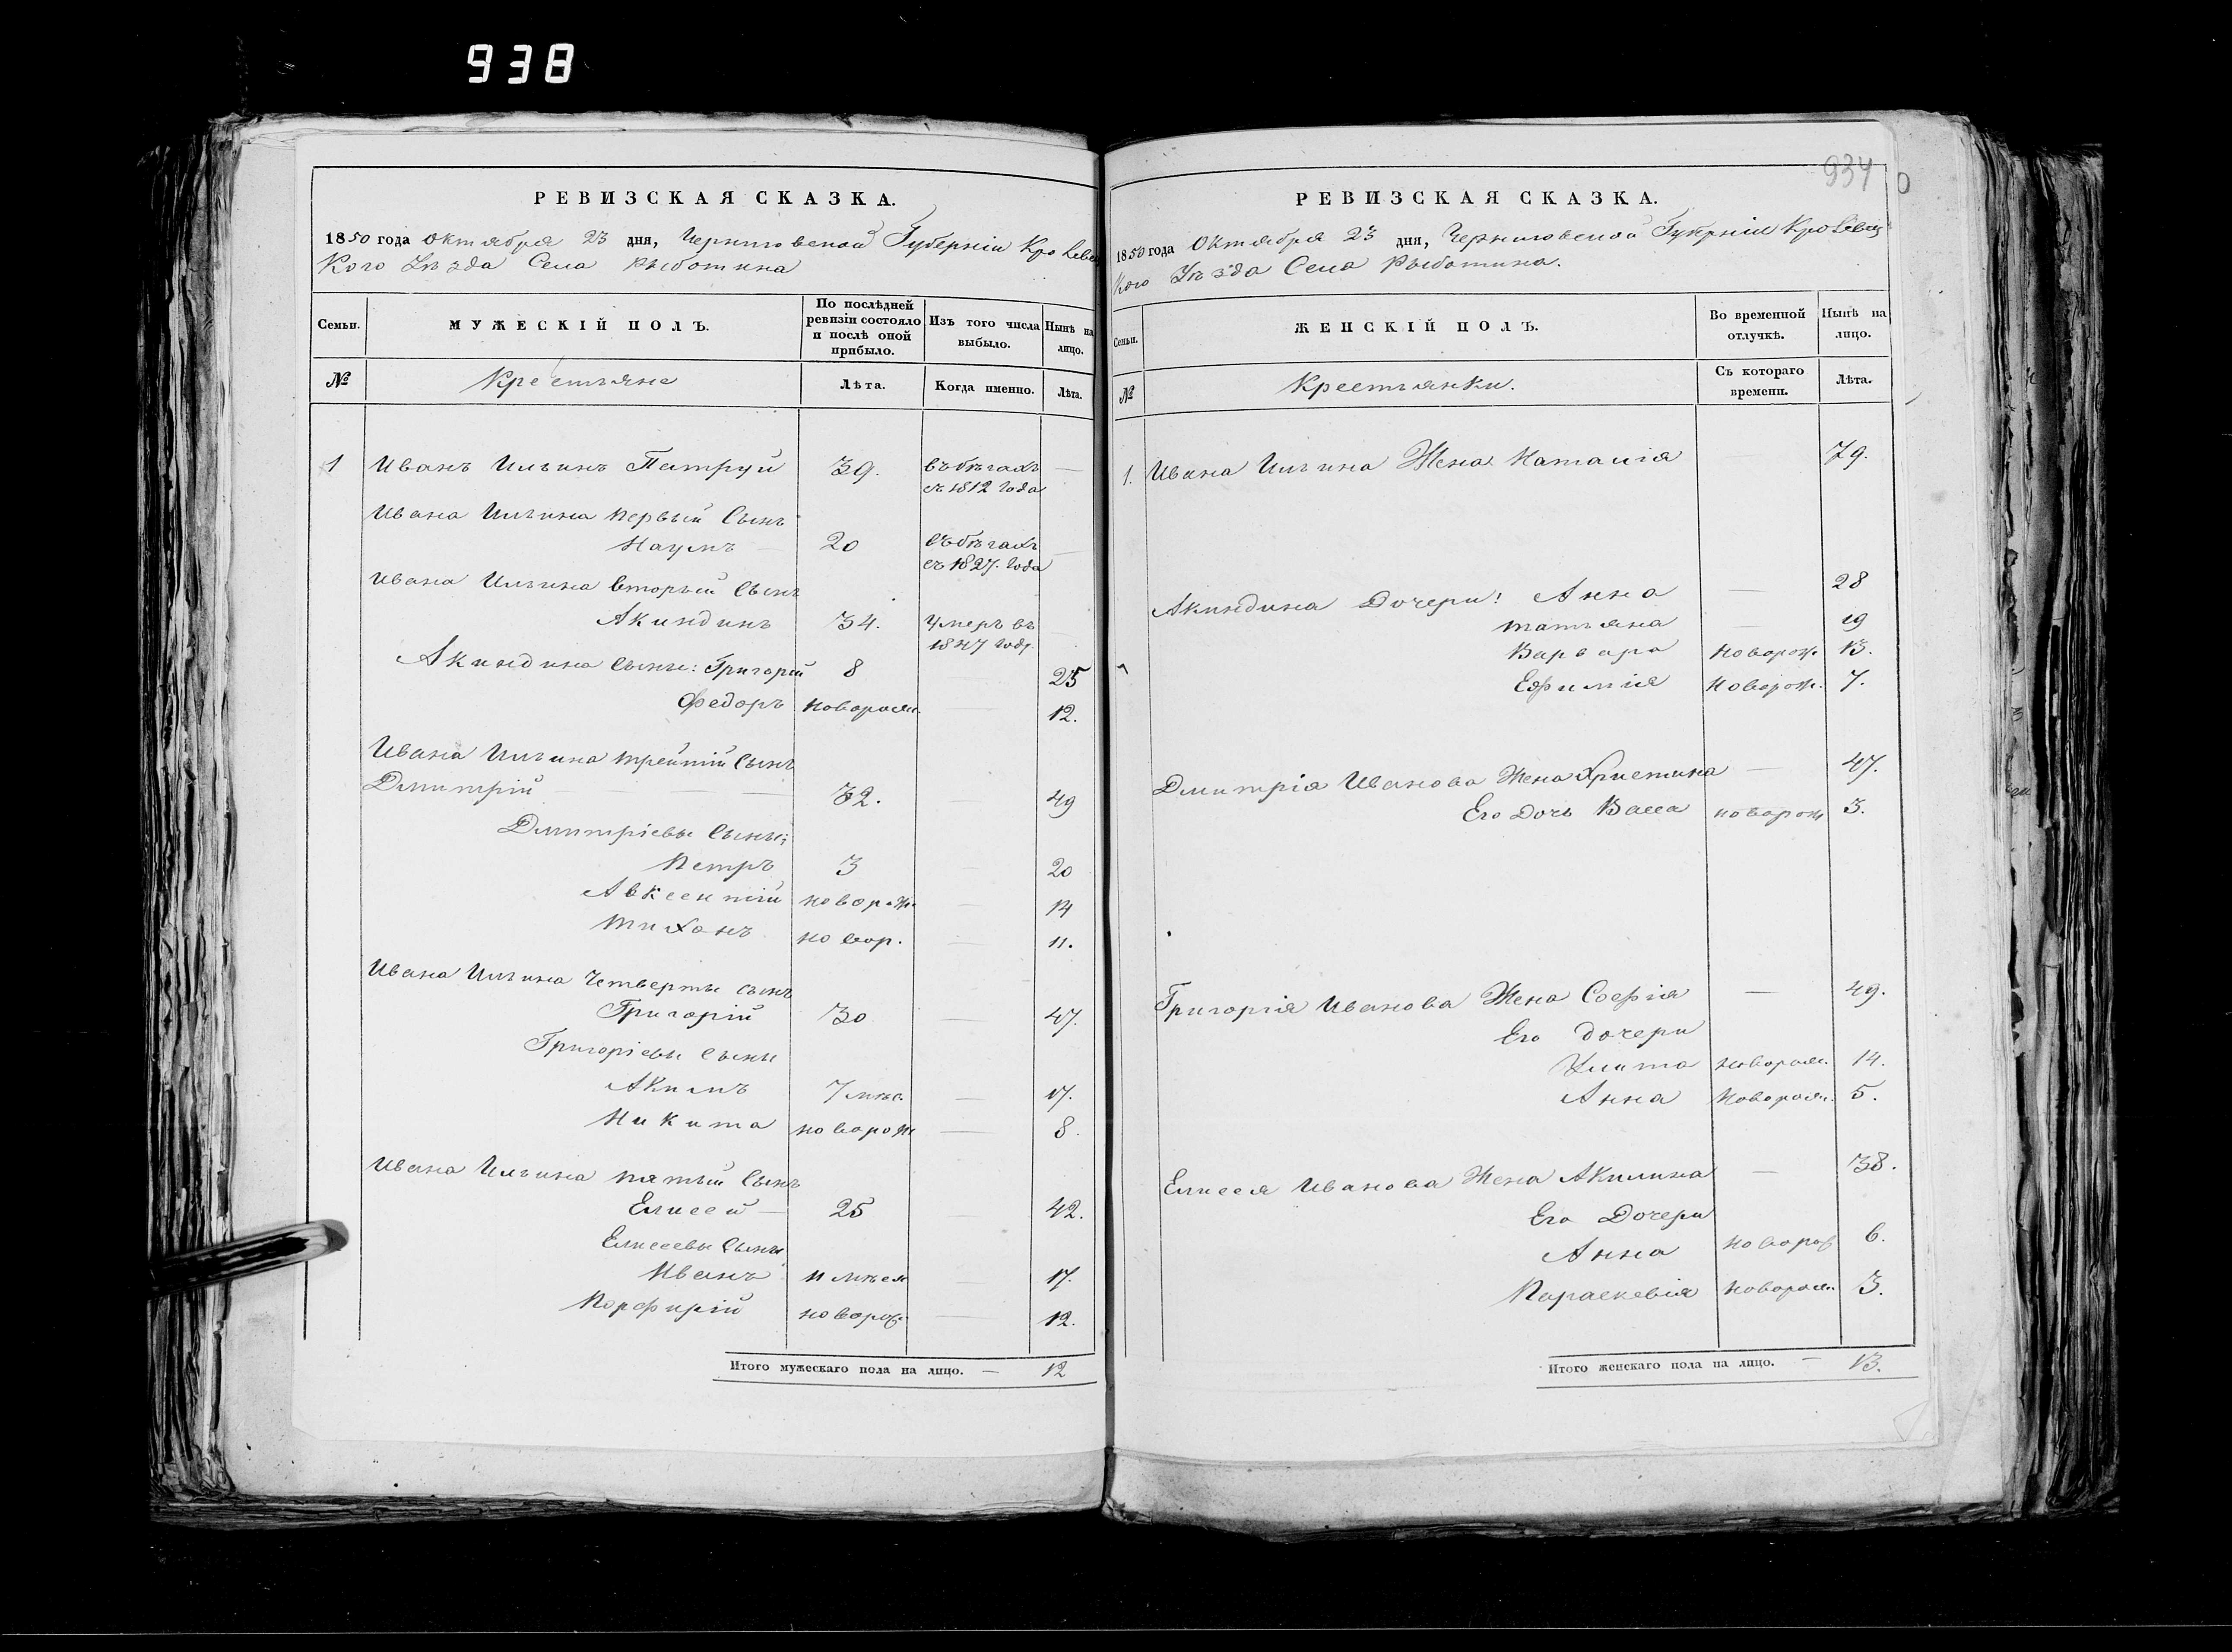 938
РЕВИЗСКАЯ СКАЗКА.
1850 года Октября 23 дня, Черниговской Губерніи Кролевец
Кого Уѣзда Села Рыботина
Семьи. МУЖЕСКІЙ ПОЛЪ. По послѣдней ревизіи состояло и послѣ оной прибыло. Изъ того числа выбыло. Нынѣ на лицо.
№ Крестьяне Лѣта. Когда именно. Лѣта.
1 Иванъ Ильинъ Патруй 39. въ бѣгахъ —
съ 1812 года
Ивана Ильина первый Сынъ
Наумъ — 20 въ бѣгахъ —
съ 1827. года
Ивана Ильина вторый Сынъ
Акиндинъ 34. Умеръ въ —
1847 году.
Акиндина Сыны: Григорій 8 25
Федоръ новорожд. — 12.
Ивана Ильина третій Сынъ
Дмитрій — — — 32. — 49
Дмитріевы Сыны:
Петръ 3 — 20
Авксентій новорож. — 14
Тихонъ новор. — 11.
Ивана Ильина Четверты сынъ
Григорій 30 — 47.
Григоріевы Сыны
Акимъ 7 мѣс. — 17.
Никита новорож — 8.
Ивана Ильина пятый Сынъ
Елисей — 25 — 42.
Елисеевы Сыны
Иванъ 11 мѣся — 17.
Порфирій новорож. — 12.
Итого мужескаго пола на лицо. — 12
934
РЕВИЗСКАЯ СКАЗКА.
1850 года Октября 23 дня, Черниговской Губрніи Кролевец
Кого Уѣзда Села Рыботина.
Семьи. ЖЕНСКІЙ ПОЛЪ. Во временной отлучкѣ. Нынѣ на лицо.
№ Крестьянки. Съ котораго времени. Лѣта.
1. Ивана Ильина Жена Наталія — 79.
Акиндина Дочери: Анна — 28
Татьяна — 19
Варвара новорож. 13.
Ефимія новорож. 7.
Дмитрія Иванова Жена Христина — 47.
Его Дочь Васса новорож 3.
Григорія Иванова Жена Софія — 49.
Его дочери
Улита новорож. 14.
Анна новорож. 5.
Елисея Иванова Жена Акилина — 38.
Его Дочери
Анна новорож 6.
Параскевія новорож. 3.
Итого женскаго пола на лицо. — 13.